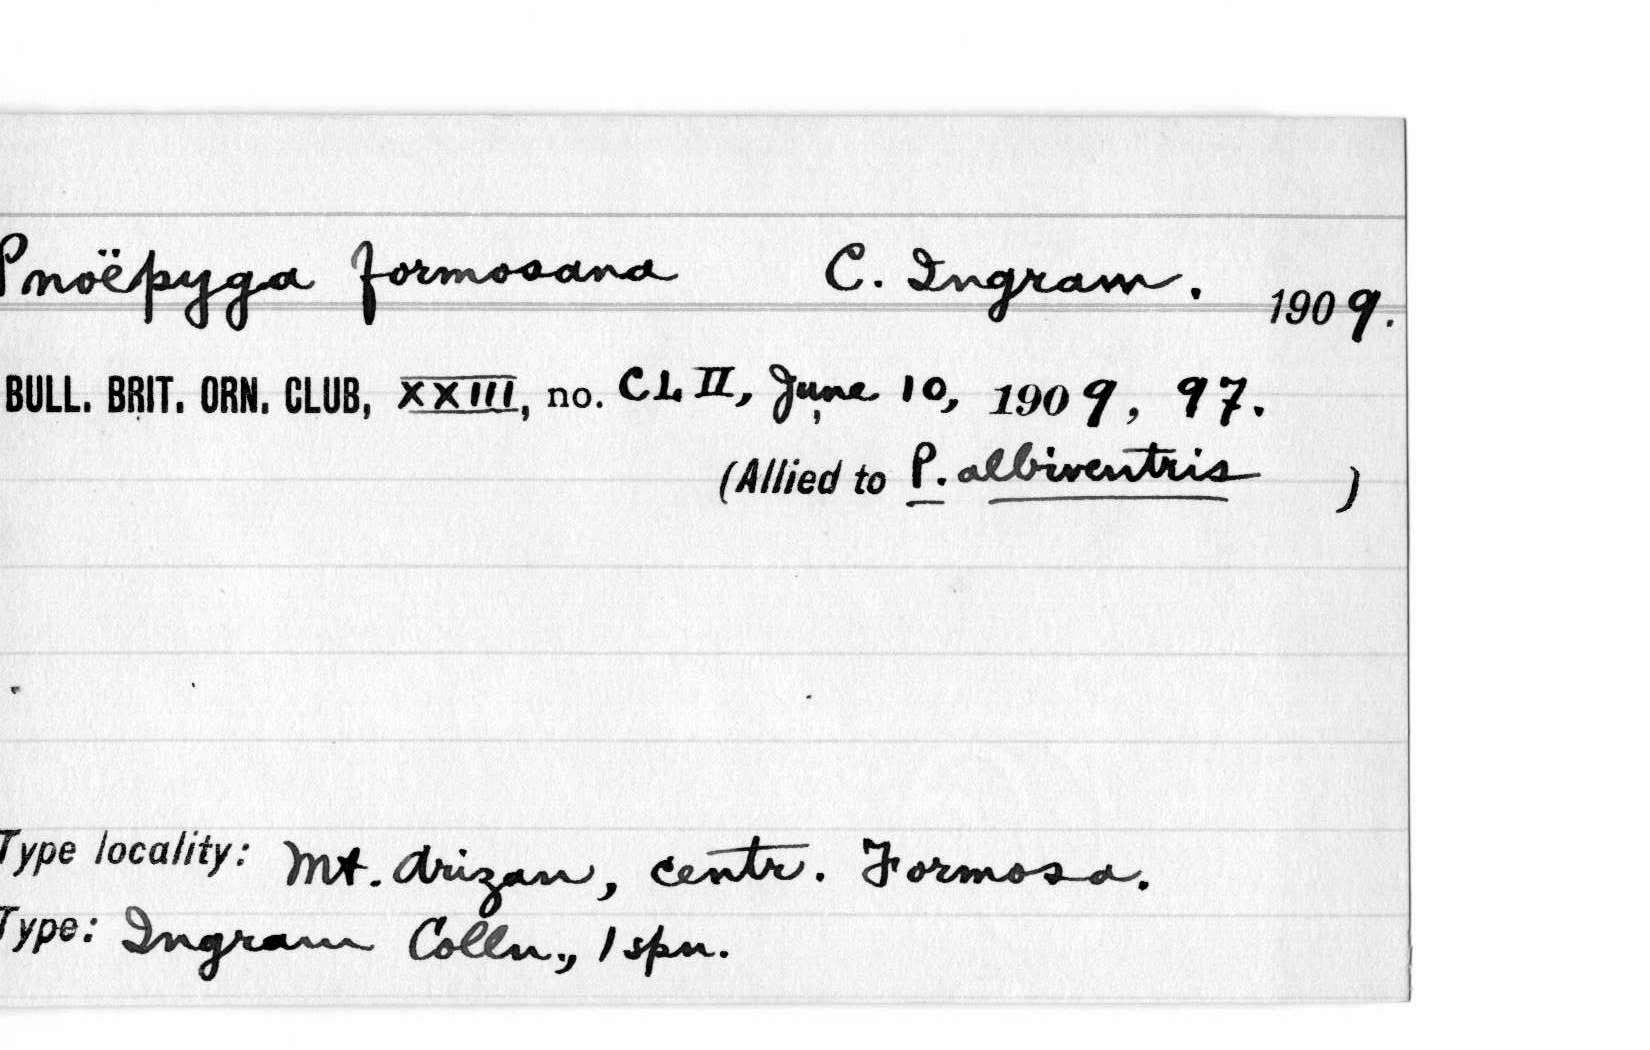 Pnoëpyga formosana C. Ingram. 1909.
BULL. BRIT. ORN. CLUB, XXIII, no. CLII, June 10, 1909, 97.
(Allied to P. albiventris )
Type locality: Mt. Arizan, centr. Formosa.
Type: Ingram Colln., 1 spn.